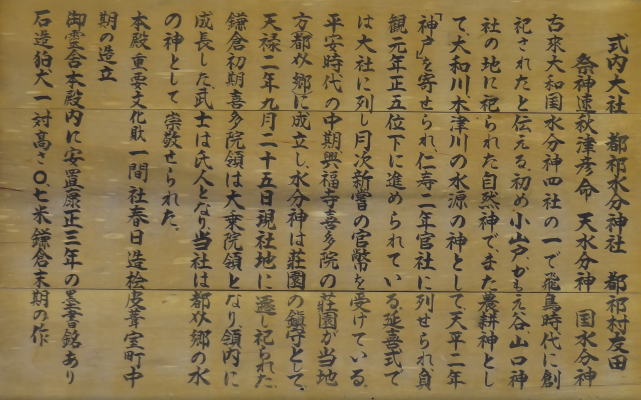 式内大社 都祁水分神社 都祁村友田
祭神速秋津彦命 天水分神 国水分神
古来大和国水分神四社の一で飛鳥時代に創
祀されたと伝える。初め小山戸かもえ谷山口神
社の地に祀られた自然神で、また農耕神とし
て、大和川、木津川の水源の神として、天平二年
「神戸」を寄せられ、仁寿二年官社に列せられ、貞
観元年正五位下に進められている。延喜式で
は大社に列し月次新嘗の官幣を受けている。
平安時代の中期興福寺喜多院の荘園が当地
方都祁郷に成立し、水分神は荘園の鎮守として、
天禄二年九月二十五日現社地に遷し祀られた。
鎌倉初期喜多院領は大乗院領となり、領内に
成長した武士は氏人となり当社は都祁郷の水
の神として崇敬せられた。
本殿重要文化財一間社春日造桧皮葺室町中
期の造立
御霊舎本殿内に安置康正三年の墨書銘あり
石造狛犬一対高さ〇.七米鎌倉末期の作